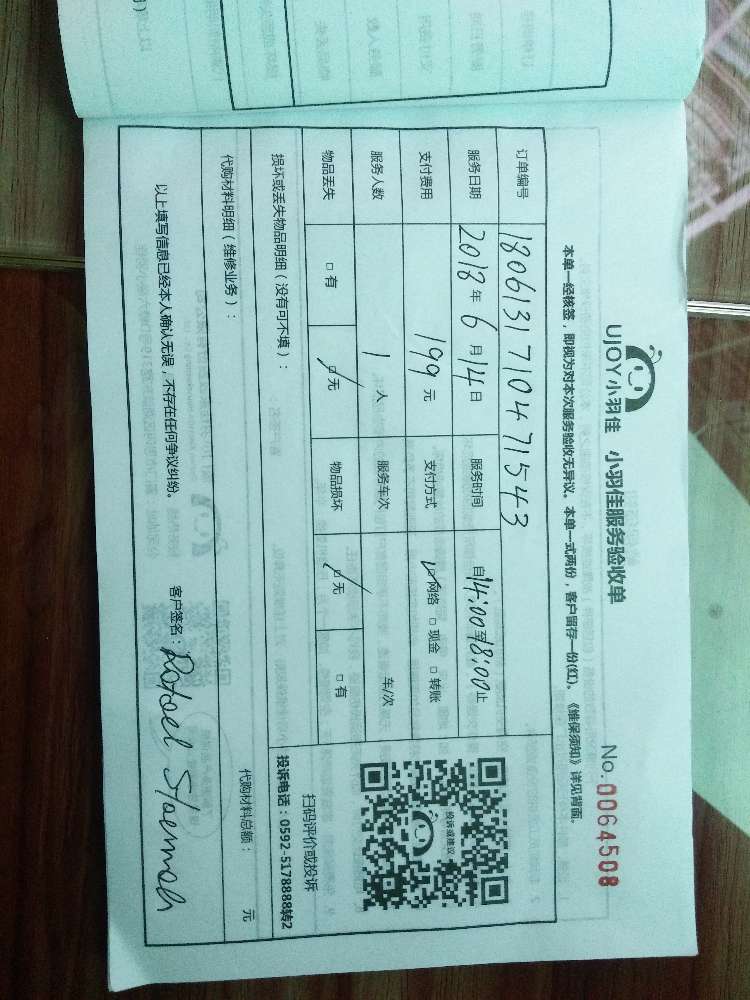 UJOY小羽佳 小羽佳服务验收单
No.0064508
本单一经核签，即视为对本次服务验收无异议。本单一式两份，客户留存一份(红)。《维保须知》详见背面。
订单编号 180613171047 1543
服务日期 2018年6月14日 服务时间 自14:00至18:00止
支付费用 199元 支付方式 ☑网络 □现金 □转账
服务人数 1人 服务车次 车/次
物品丢失 □有 ☑无 物品损坏 ☑无 □有
投诉或建议
扫码评价或投诉
投诉电话：0592-5178888转2
损坏或丢失物品明细（没有可不填）：
代购材料明细（维修业务）： 代购材料总额： 元
以上填写信息已经本人确认无误，不存在任何争议纠纷。 客户签名：Rafael